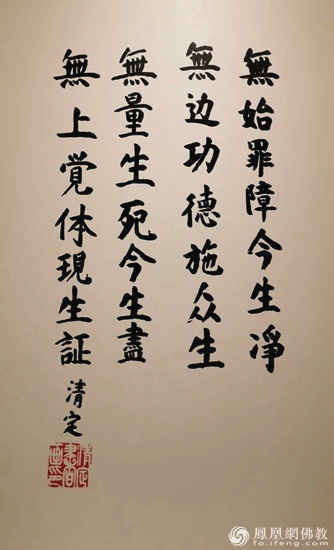 無始罪障今生净
無边功德施众生
無量生死今生盡
無上覚体現生証
清定
鳳凰網佛教
fo.ifeng.com